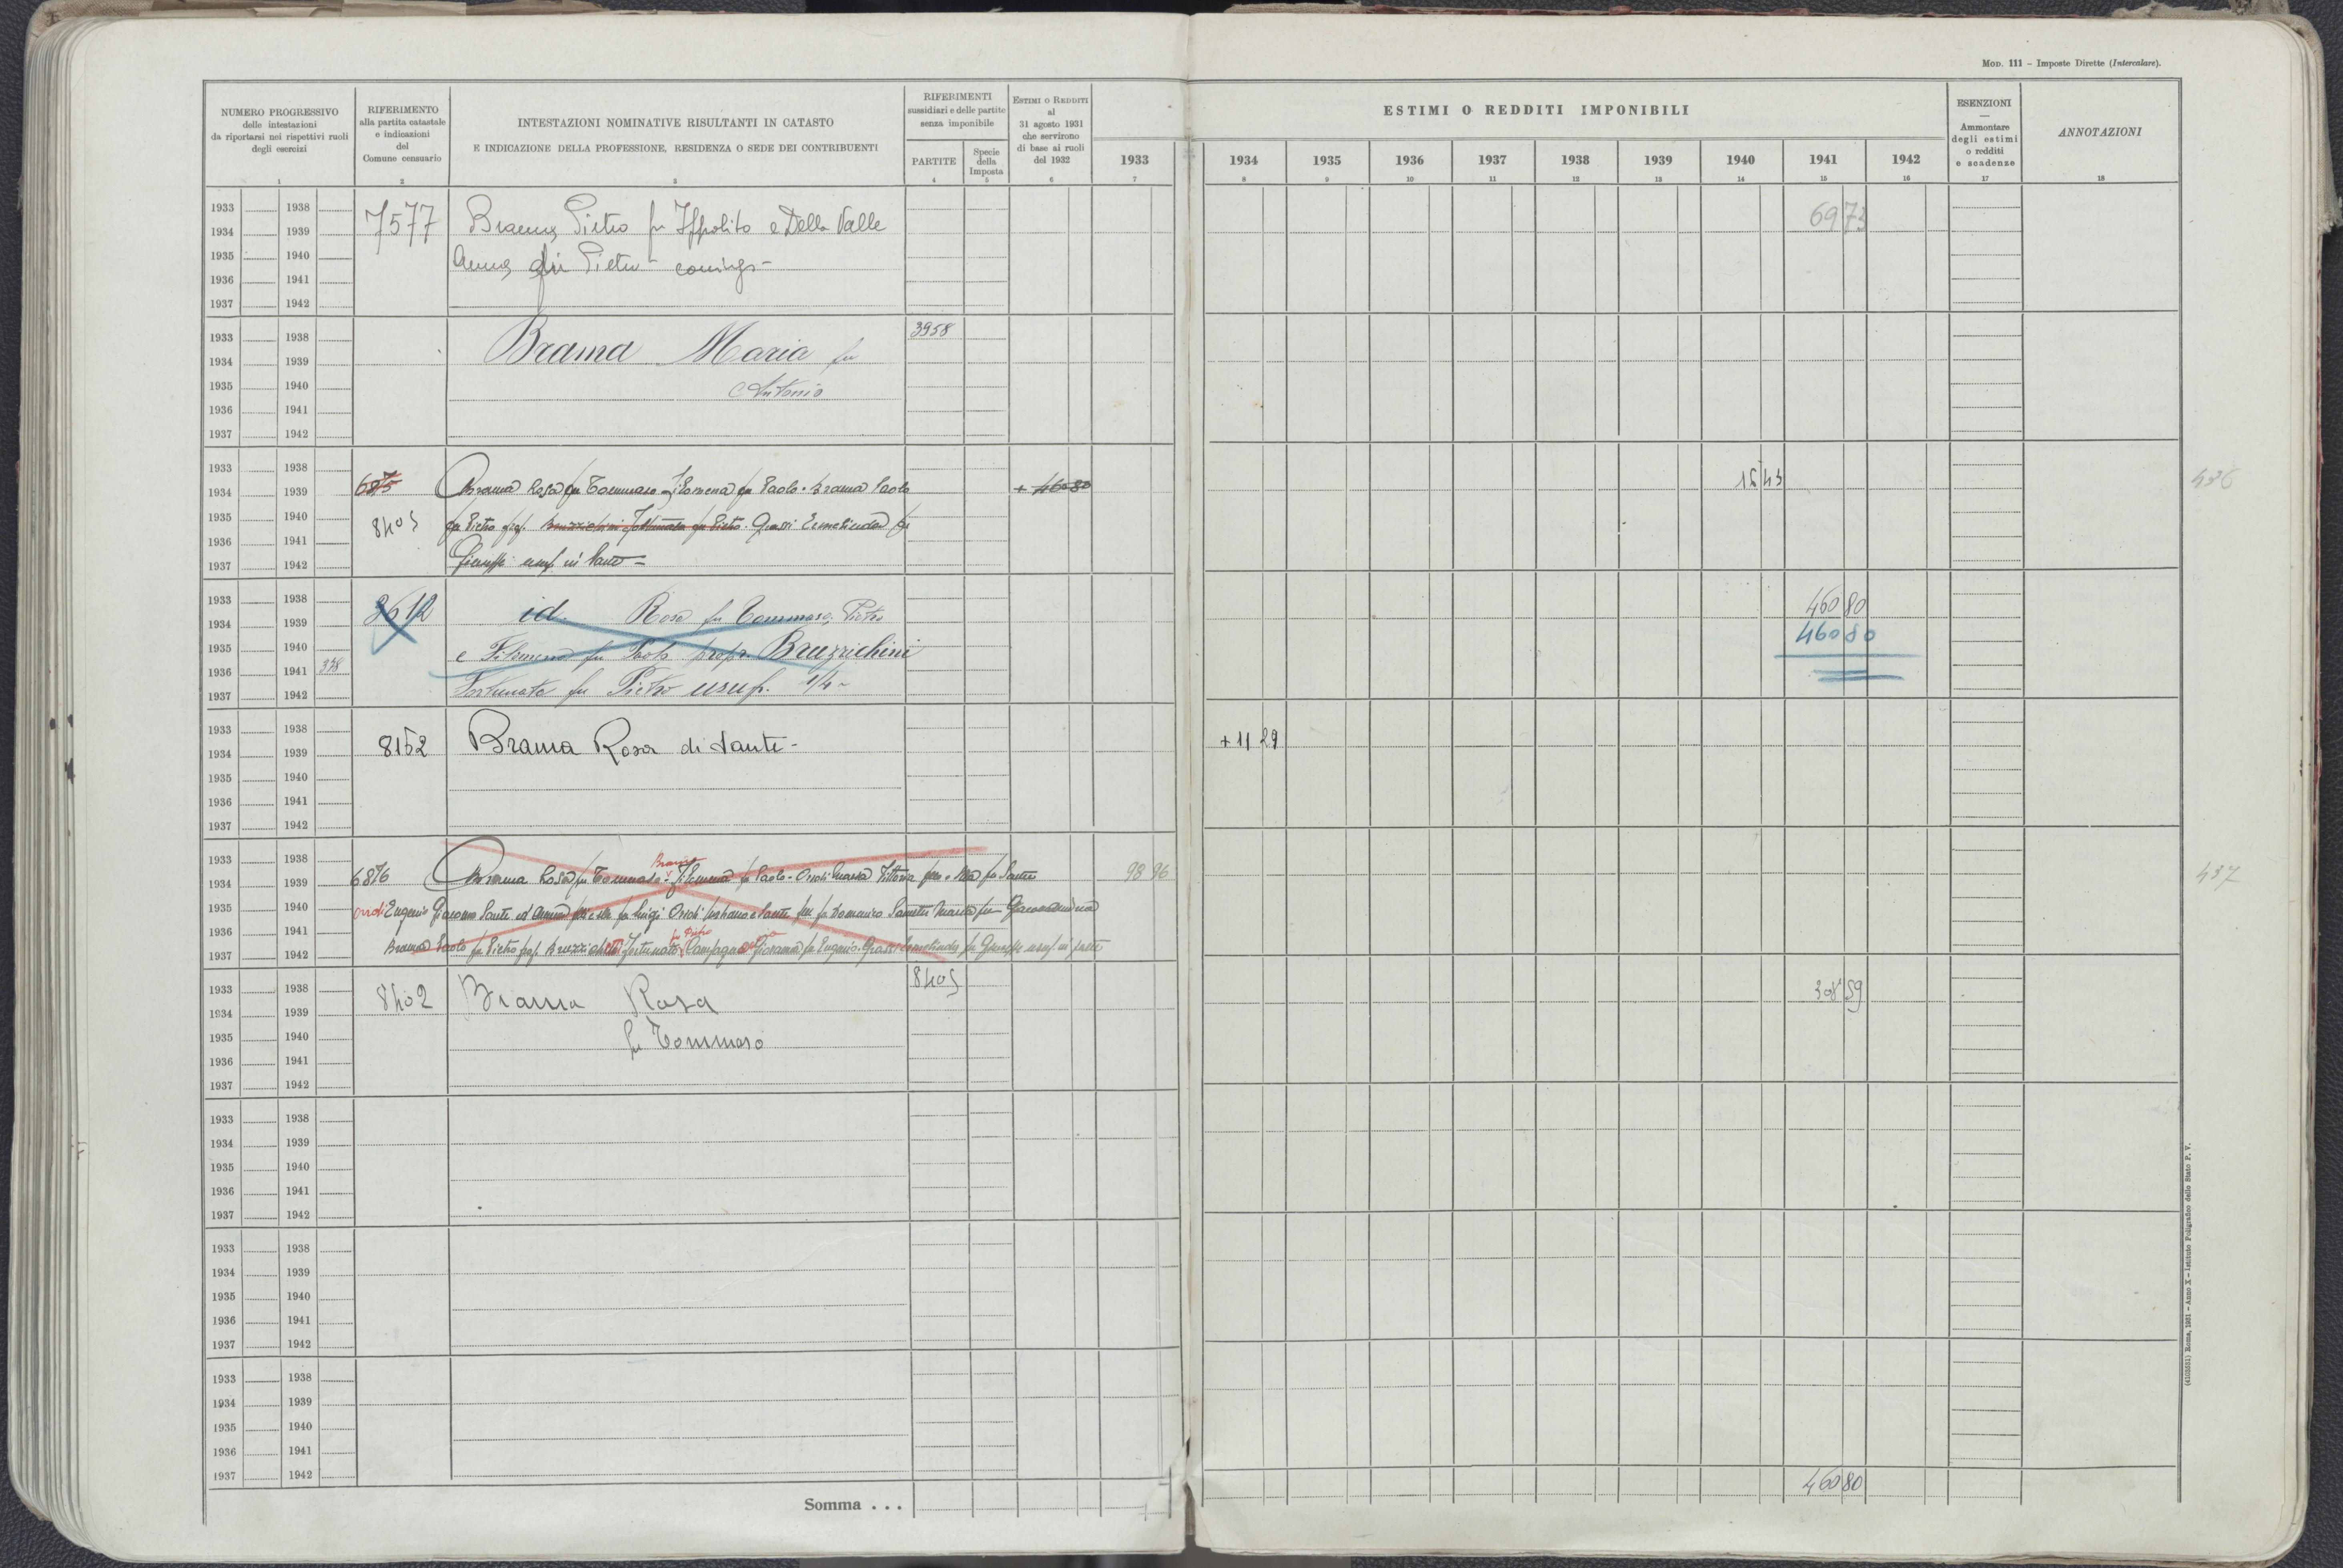 MOD. 111 – Imposte Dirette (Intercalare).
NUMERO PROGRESSIVO
delle intestazioni
da riportarsi nei rispettivi ruoli
degli esercizi
1
RIFERIMENTO
alla partita catastale
e indicazioni
del
Comune censuario
2
INTESTAZIONI NOMINATIVE RISULTANTI IN CATASTO
E INDICAZIONE DELLA PROFESSIONE, RESIDENZA O SEDE DEI CONTRIBUENTI
3
RIFERIMENTI
sussidiari e delle partite
senza imponibile
PARTITE
4
Specie
della
Imposta
5
ESTIMI O REDDITI
al
31 agosto 1931
che servirono
di base ai ruoli
del 1932
6
ESTIMI O REDDITI IMPONIBILI
1933 1934 1935 1936 1937 1938 1939 1940 1941 1942
7 8 9 10 11 12 13 14 15 16
ESENZIONI
—
Ammontare
degli estimi
o redditi
e scadenze
17
ANNOTAZIONI
18
1933 1938
1934 1939 7577 Brama Pietro fu Ippolito e Della Valle 6973
1935 1940 Anna fu Pietro coniugi –
1936 1941
1937 1942
1933 1938 3958
1934 1939 Brama Maria fu
1935 1940 Antonio
1936 1941
1937 1942
1933 1938
1934 1939 6875 Brama Rosa fu Tommaso Filomena fu Paolo - Brama Paolo + 46080 1543 436
1935 1940 8405 fu Pietro prop. Bruzzichini Fortunata fu Pietro. Grassi Ermelinda fu
1936 1941
1937 1942 Giuseppe usuf in parte –
1933 1938 8612 id. Rosa fu Tommaso, Pietro 46080
1934 1939 46080
1935 1940 e Filomena fu Paolo propr. Bruzzichini
1936 1941 378
1937 1942 Fortunata fu Pietro usuf. 1/4 –
1933 1938
1934 1939 8152 Brama Rosa di Sante – + 11 29
1935 1940
1936 1941
1937 1942
1933 1938 Brama
1934 1939 6876 Brama Rosa fu Tommaso - Filomena fu Paolo - Orsoli Maria Vittoria fu Sante 98 96 437
1935 1940 Eugenio Giacomo Sante ed Anna fu Luigi Orsoli e Sante fu Domenico Maria fu
1936 1941 fu Pietro
1937 1942 Brama Paolo fu Pietro prop. Fortunata Campagna Giovanna fu Eugenio. Grassi Ermelinda fu Giuseppe usuf. in parte
1933 1938 8402 Brama Rosa 8405 308 59
1934 1939
1935 1940 fu Tommaso
1936 1941
1937 1942
1933 1938
1934 1939
1935 1940
1936 1941
1937 1942
1933 1938
1934 1939
1935 1940
1936 1941
1937 1942
1933 1938
1934 1939
1935 1940
1936 1941
1937 1942
46080
Somma . . .
(4103551) Roma, 1931 – Anno X – Istituto Poligrafico dello Stato P. V.